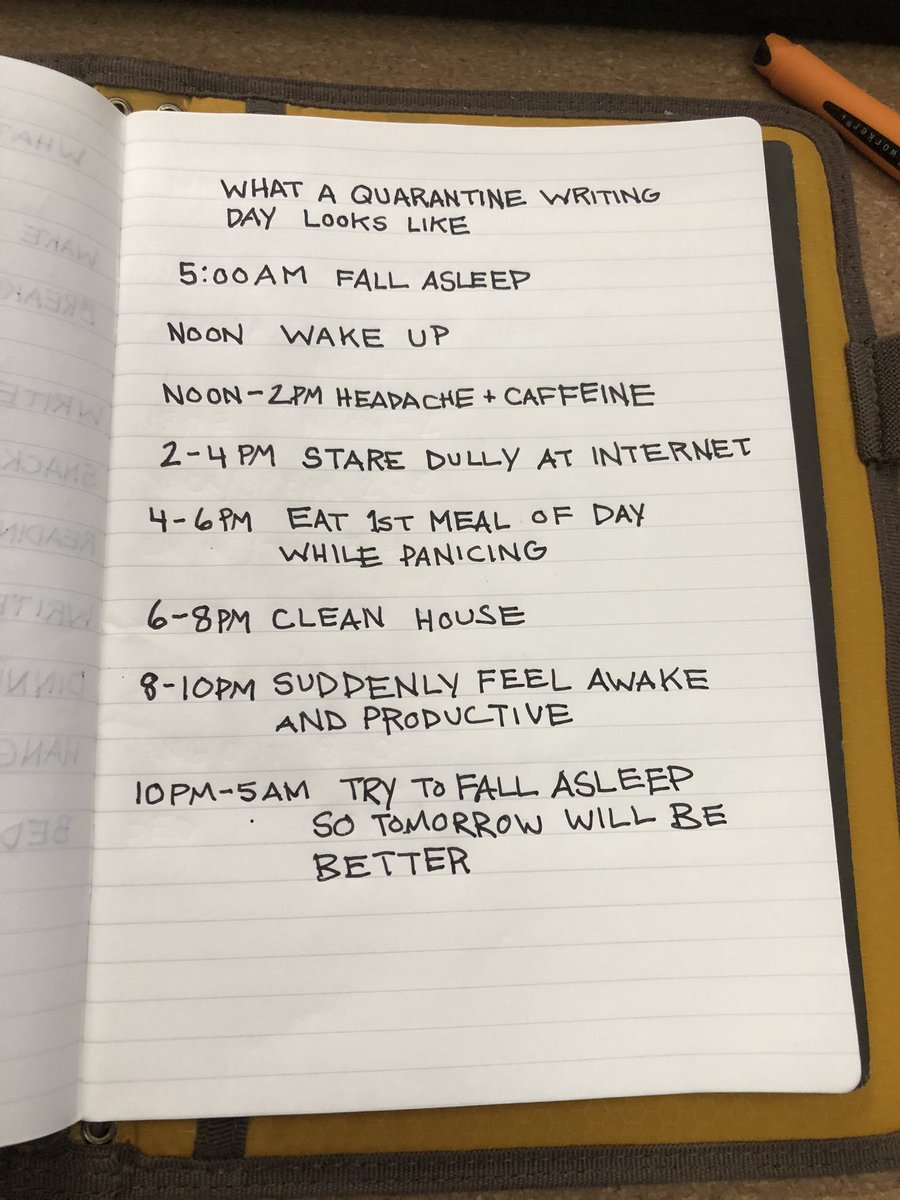 WHAT A QUARANTINE WRITING
DAY LOOKS LIKE
5:00AM FALL ASLEEP
NOON WAKE UP
NOON-2PM HEADACHE + CAFFEINE
2-4PM STARE DULLY AT INTERNET
4-6PM EAT 1ST MEAL OF DAY
WHILE PANICING
6-8PM CLEAN HOUSE
8-10PM SUDDENLY FEEL AWAKE
AND PRODUCTIVE
10PM-5AM TRY TO FALL ASLEEP
SO TOMORROW WILL BE
BETTER
worker+